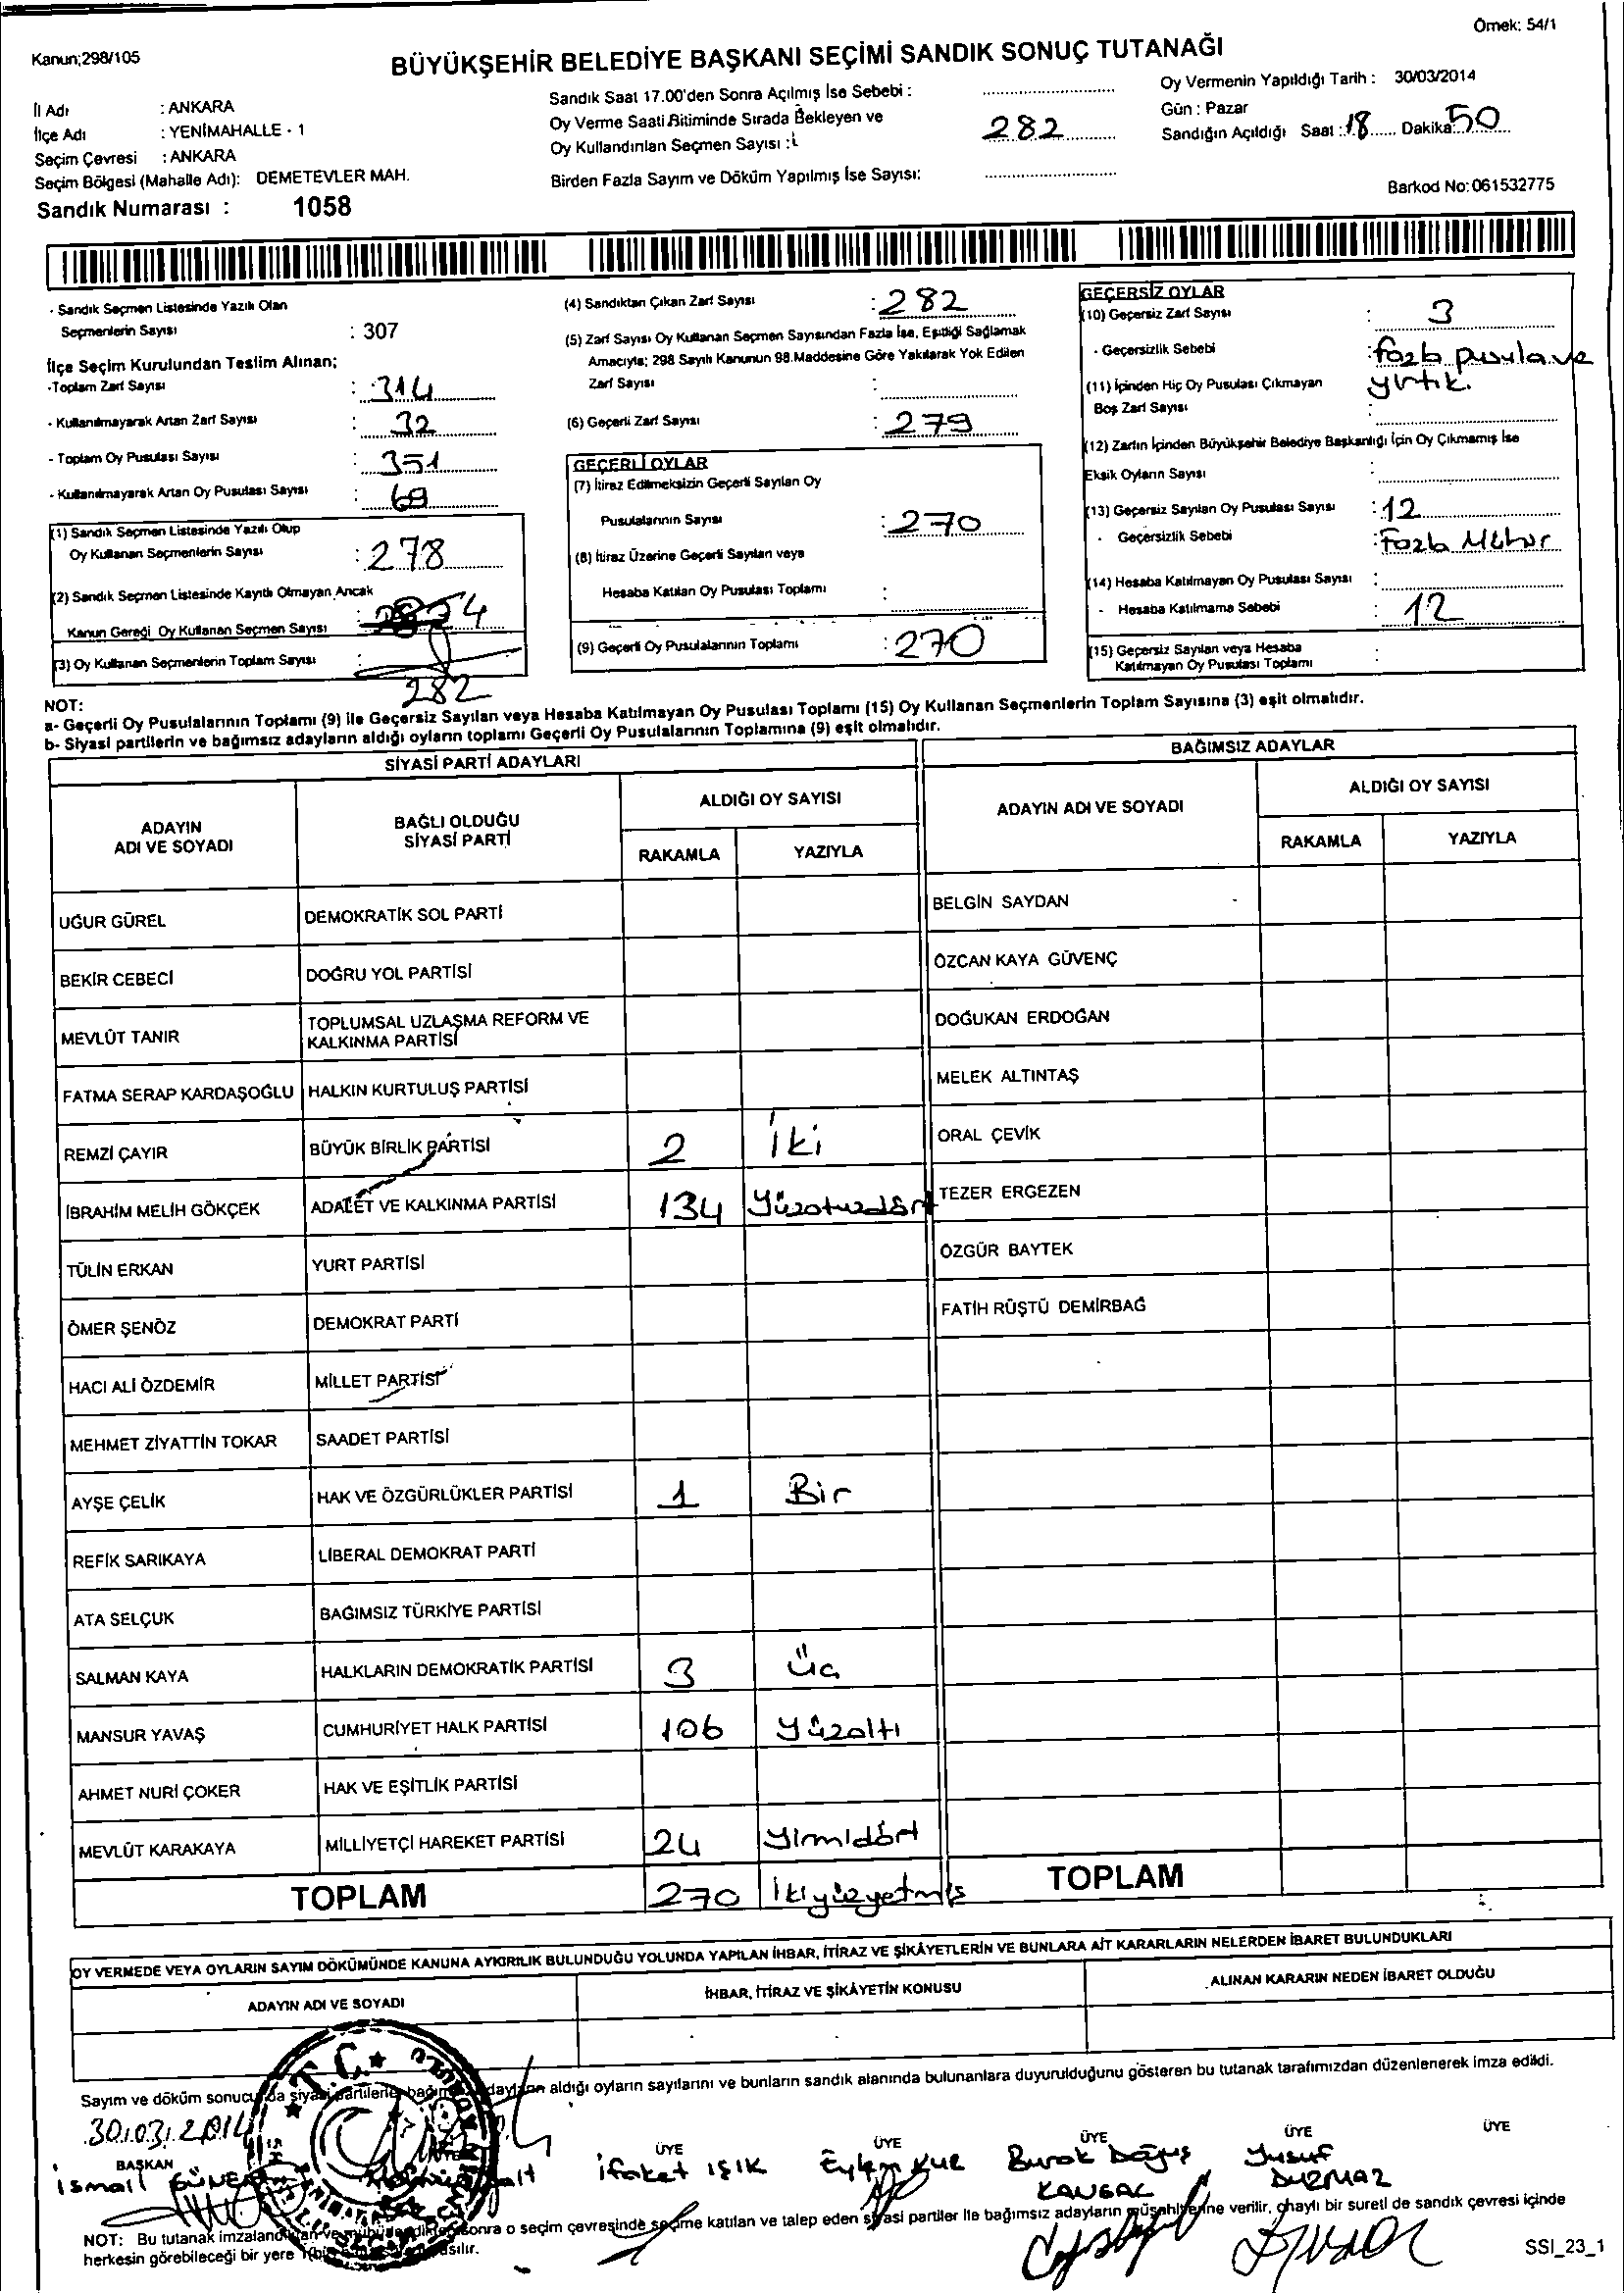 Örnek: 54/1
Kanun;298/105
BÜYÜKŞEHİR BELEDİYE BAŞKANI SEÇİMİ SANDIK SONUÇ TUTANAĞI
İl Adı : ANKARA
İlçe Adı : YENİMAHALLE - 1
Seçim Çevresi : ANKARA
Seçim Bölgesi (Mahalle Adı): DEMETEVLER MAH.
Sandık Numarası : 1058
Sandık Saat 17.00'den Sonra Açılmış İse Sebebi :
Oy Verme Saati Bitiminde Sırada Bekleyen ve
Oy Kullandırılan Seçmen Sayısı : 282
Birden Fazla Sayım ve Döküm Yapılmış İse Sayısı:
Oy Vermenin Yapıldığı Tarih : 30/03/2014
Gün : Pazar
Sandığın Açıldığı Saat : 18 Dakika: 50
Barkod No: 061532775
- Sandık Seçmen Listesinde Yazılı Olan
Seçmenlerin Sayısı : 307
İlçe Seçim Kurulundan Teslim Alınan;
-Toplam Zarf Sayısı : 314
- Kullanılmayarak Artan Zarf Sayısı : 32
- Toplam Oy Pusulası Sayısı : 351
- Kullanılmayarak Artan Oy Pusulası Sayısı : 69
(1) Sandık Seçmen Listesinde Yazılı Olup
Oy Kullanan Seçmenlerin Sayısı : 278
(2) Sandık Seçmen Listesinde Kayıtlı Olmayan Ancak
Kanun Gereği Oy Kullanan Seçmen Sayısı 4
(3) Oy Kullanan Seçmenlerin Toplam Sayısı :
282
(4) Sandıktan Çıkan Zarf Sayısı : 282
(5) Zarf Sayısı Oy Kullanan Seçmen Sayısından Fazla İse, Eşitliği Sağlamak
Amacıyla; 298 Sayılı Kanunun 98.Maddesine Göre Yakılarak Yok Edilen
Zarf Sayısı :
(6) Geçerli Zarf Sayısı : 279
GEÇERLİ OYLAR
(7) İtiraz Edilmeksizin Geçerli Sayılan Oy
Pusulalarının Sayısı : 270
(8) İtiraz Üzerine Geçerli Sayılan veya
Hesaba Katılan Oy Pusulası Toplamı :
(9) Geçerli Oy Pusulalarının Toplamı : 270
GEÇERSİZ OYLAR
(10) Geçersiz Zarf Sayısı : 3
- Geçersizlik Sebebi : fazla pusula ve
yırtık.
(11) İçinden Hiç Oy Pusulası Çıkmayan
Boş Zarf Sayısı :
(12) Zarfın İçinden Büyükşehir Belediye Başkanlığı İçin Oy Çıkmamış İse
Eksik Oyların Sayısı :
(13) Geçersiz Sayılan Oy Pusulası Sayısı : 12
- Geçersizlik Sebebi : Fazla Mühür
(14) Hesaba Katılmayan Oy Pusulası Sayısı :
- Hesaba Katılmama Sebebi : 12
(15) Geçersiz Sayılan veya Hesaba
Katılmayan Oy Pusulası Toplamı :
NOT:
a- Geçerli Oy Pusulalarının Toplamı (9) ile Geçersiz Sayılan veya Hesaba Katılmayan Oy Pusulası Toplamı (15) Oy Kullanan Seçmenlerin Toplam Sayısına (3) eşit olmalıdır.
b- Siyasi partilerin ve bağımsız adayların aldığı oyların toplamı Geçerli Oy Pusulalarının Toplamına (9) eşit olmalıdır.
SİYASİ PARTİ ADAYLARI
ADAYIN ADI VE SOYADI
BAĞLI OLDUĞU SİYASİ PARTİ
ALDIĞI OY SAYISI
RAKAMLA YAZIYLA
UĞUR GÜREL DEMOKRATİK SOL PARTİ
BEKİR CEBECİ DOĞRU YOL PARTİSİ
MEVLÜT TANIR TOPLUMSAL UZLAŞMA REFORM VE KALKINMA PARTİSİ
FATMA SERAP KARDAŞOĞLU HALKIN KURTULUŞ PARTİSİ
REMZİ ÇAYIR BÜYÜK BİRLİK PARTİSİ 2 İki
İBRAHİM MELİH GÖKÇEK ADALET VE KALKINMA PARTİSİ 134 Yüzotuzdört
TÜLİN ERKAN YURT PARTİSİ
ÖMER ŞENÖZ DEMOKRAT PARTİ
HACI ALİ ÖZDEMİR MİLLET PARTİSİ
MEHMET ZİYATTİN TOKAR SAADET PARTİSİ
AYŞE ÇELİK HAK VE ÖZGÜRLÜKLER PARTİSİ 1 Bir
REFİK SARIKAYA LİBERAL DEMOKRAT PARTİ
ATA SELÇUK BAĞIMSIZ TÜRKİYE PARTİSİ
SALMAN KAYA HALKLARIN DEMOKRATİK PARTİSİ 3 Üç
MANSUR YAVAŞ CUMHURİYET HALK PARTİSİ 106 Yüzaltı
AHMET NURİ ÇOKER HAK VE EŞİTLİK PARTİSİ
MEVLÜT KARAKAYA MİLLİYETÇİ HAREKET PARTİSİ 24 Yirmidört
TOPLAM 270 İkiyüzyetmiş
BAĞIMSIZ ADAYLAR
ADAYIN ADI VE SOYADI
ALDIĞI OY SAYISI
RAKAMLA YAZIYLA
BELGİN SAYDAN
ÖZCAN KAYA GÜVENÇ
DOĞUKAN ERDOĞAN
MELEK ALTINTAŞ
ORAL ÇEVİK
TEZER ERGEZEN
ÖZGÜR BAYTEK
FATİH RÜŞTÜ DEMİRBAĞ
TOPLAM
OY VERMEDE VEYA OYLARIN SAYIM DÖKÜMÜNDE KANUNA AYKIRILIK BULUNDUĞU YOLUNDA YAPILAN İHBAR, İTİRAZ VE ŞİKÂYETLERİN VE BUNLARA AİT KARARLARIN NELERDEN İBARET BULUNDUKLARI
ADAYIN ADI VE SOYADI İHBAR, İTİRAZ VE ŞİKÂYETİN KONUSU ALINAN KARARIN NEDEN İBARET OLDUĞU
T.C.
Sayım ve döküm sonucunda siyasi partilerle aldığı oyların sayılarını ve bunların sandık alanında bulunanlara duyurulduğunu gösteren bu tutanak tarafımızdan düzenlenerek imza edildi.
30.03.2014
BAŞKAN ÜYE ÜYE ÜYE ÜYE ÜYE
İsmail İfaket IŞIK Eylem Burak Doğuş Yusuf
KANGAL DURMAZ
NOT: Bu tutanak sonra o seçim çevresinde seçime katılan ve talep eden siyasi partiler ile bağımsız adayların müşahitlerine verilir, onaylı bir sureti de sandık çevresi içinde
herkesin görebileceği bir yere asılır.
SSI_23_1